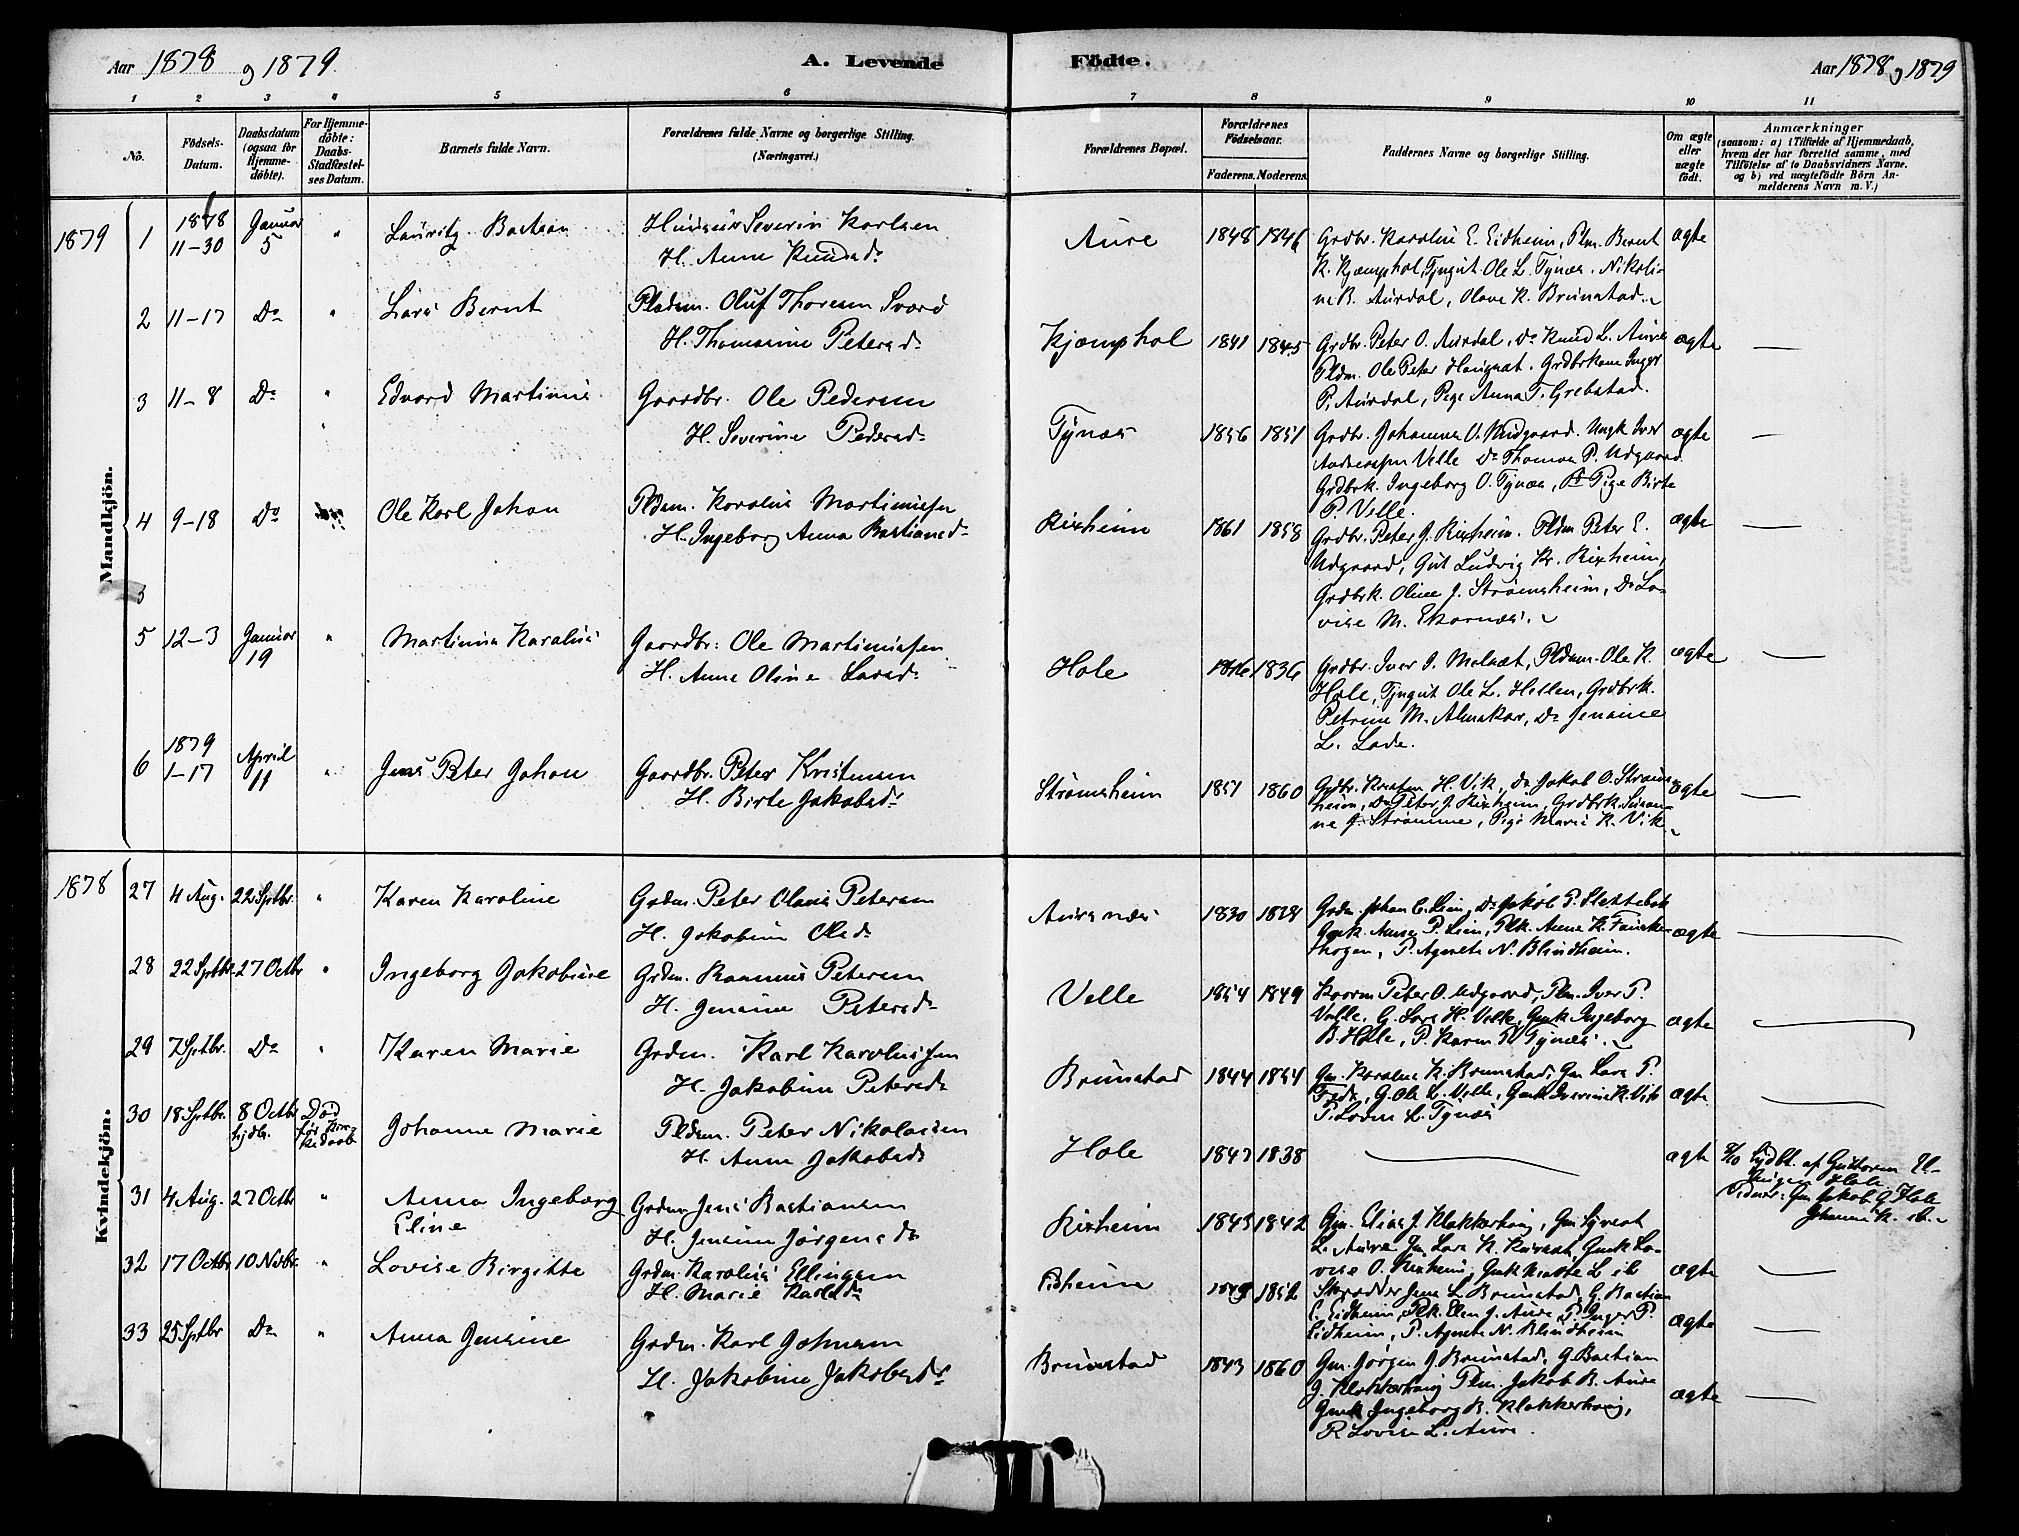 Aar 1878 og 1879
A. Levende
Födte.
Aar 1878 og 1879
1 2 3 4 5 6 7 8 9 10 11
No.
Födsels-Datum.
Daabsdatum (ogsaa for Hjemme-döbte).
For Hjemme-döbte: Daabs-Stadfæstel-ses Datum.
Barnets fulde Navn.
Forældrenes fulde Navne og borgerlige Stilling.
(Næringsvei.)
Forældrenes Bopæl.
Forældrenes Födselsaar.
Faderens. Moderens.
Faddernes Navne og borgerlige Stilling.
Om ægte eller uægte födt.
Anmærkninger
(saasom: a) i Tilfælde af Hjemmedaab,
hvem der har forrettet samme, med
Tilföielse af to Daabsvidners Navne.
og b) ved uægtefödte Börn An-
melderens Navn m. V.)
Mandkjön.
1879 1 1878 11-30 Januar 5 " Lauritz Bastian
Severin Karlsen
H. Anne Knudsd.
Aure 1848 1846
Grdbr. Karolus E. Eidheim, Plm. Bernt
K. Kjæmphol, Tjngut Ole L. Tynæs. Nikoli-
ne B. Aurdal, Olave K. Brunstad.
ægte
2 11-17 Do " Lars Bernt
Pladsm. Oluf Thoresen Sværd
H. Thomasine Petersd.
Kjæmphol 1841 1845
Grdbr. Peter O. Aurdal, Do Knud L. Aure
Pldm. Ole Peter Haugnæt. Grdbrkone Inger
P. Aurdal, Pige Anna T. Grebstad.
ægte —
3 11-8 Do " Edvard Martinus
Gaardbr. Ole Pedersen
H. Severine Pedersd.
Tynæs 1856 1851
Grdbr. Johannes O. Udgaard. Ungk. Iver
Andreassen Velle Do Thomas P. Udgaard
Grdbrk. Ingeborg O. Tynæs, Pige Birte
P. Velle.
ægte —
4 9-18 Do Ole Karl Johan
Pldsm. Karolus Martinussen
H. Ingeborg Anna Bastiansd.
Rixheim 1861 1858
Grdbr. Peter J. Rixheim. Pldm Peter E.
Udgaard, Gut Ludvig Kr. Rixheim,
Grdbrk. Oline J. Strömsheim, Do Lo-
vise M. Ekornæs.
ægte —
3
5 12-3 Januar 19 " Martinus Karolus
Gaardbr: Ole Martinussen
H. Anne Oline Larsd.
Hole 1836
Grdbr. Iver I. Melsæt, Pldsm. Ole K.
Hole, Tjngut Ole L. Hellen, Grdbrk.
Petrine M. Almskar, Do Jensine
L. Lade.
ægte —
6 1879 1-17 April 11 " Jens Peter Johan
Gaardbr. Peter Kristensen
H. Birte Jakobsd.
Strömsheim 1851 1860
Grdbr. Knut H. Vik, Do Jakob O. Ströms-
heim, Do Peter J. Rixheim, Grdbrk. Susan-
ne J. Strömme, Pige Marie K. Vik
ægte —
Kvindekjön.
1878 27 4 Aug. 22 Septbr. " Karen Karoline
Grdm. Peter Olaus Petersen
H. Jakobine Olsd.
Aursnæs 1830 1828
Grdm. Johan C. Lien, Do Jakob P. Slettebak
Gmk. Anne P. Lien, Plk. Anne K. Fauske-
skogen, P. Agnete N. Blindheim.
ægte —
28 22 Septbr. 27 Octbr " Ingeborg Jakobine
Grdm. Rasmus Petersen
H. Jensine Petersd.
Velle 1854 1849
Kaarm. Peter O. Udgaard, Plm. Iver P.
Velle, G. Lars H. Velle, Gmk Ingeborg
B. Hole, P. Karen K. Tynæs.
ægte
29 7 Sptbr. Do " Karen Marie
Grdm. Karl Karolussen
H. Jakobine Petersd.
Brunstad 1844 1854
Gm. Karolus K. Brunstad, Gm Lars P.
Fede, G. Ole L. Velle, Gmk Iverine K. Vik
P. Lovise L. Tynæs
ægte
30 18 Sptbr. 8 Octbr hjdb. Död för Kir-kedaab Johanne Marie
Pldsm. Peter Nikolaisen
H. Anne Jakobsd.
Hole 1847 1838
ægte 8/10 Hjdbt. af Hole
Vidner: Gm Jakob G. Hole
Johanne K. ib.
31 4 Aug. 27 Octbr " Anna Ingeborg Eline
Grdm Jens Bastiansen
H. Jensine Jörgensd.
Rixheim 1843 1842
Gm. Elias J. Klokkerhaug, Gm Syvert
L. Aure, Gm. Lars K. Gmk Lo-
vise O. Rixheim, Gmk L. ib
ægte —
32 17 Octbr. 10 Novbr. " Lovise Birgitte
Grdm. Karolus Ellingsen
H. Marie Karlsd.
Eidheim 1849 1852
Skrædder Jens L. Brunstad, G. Bastian
E. Eidheim, Plk. Elen J. Aure, P. Inger P.
Eidheim, P. Agnete N. Blindheim
ægte —
33 25 Sptbr Do " Anna Jensine
Grdm. Karl Johnsen
H. Jakobine Jakobsd.
Brunstad 1843 1860
Gm. Jörgen J. Brunstad, G. Bastian
J. Klokkerhaug Plm. Jakob B. Aure
Gmk Ingeborg B. Klokkerhaug,
P. Lovise L. Aure.
ægte —